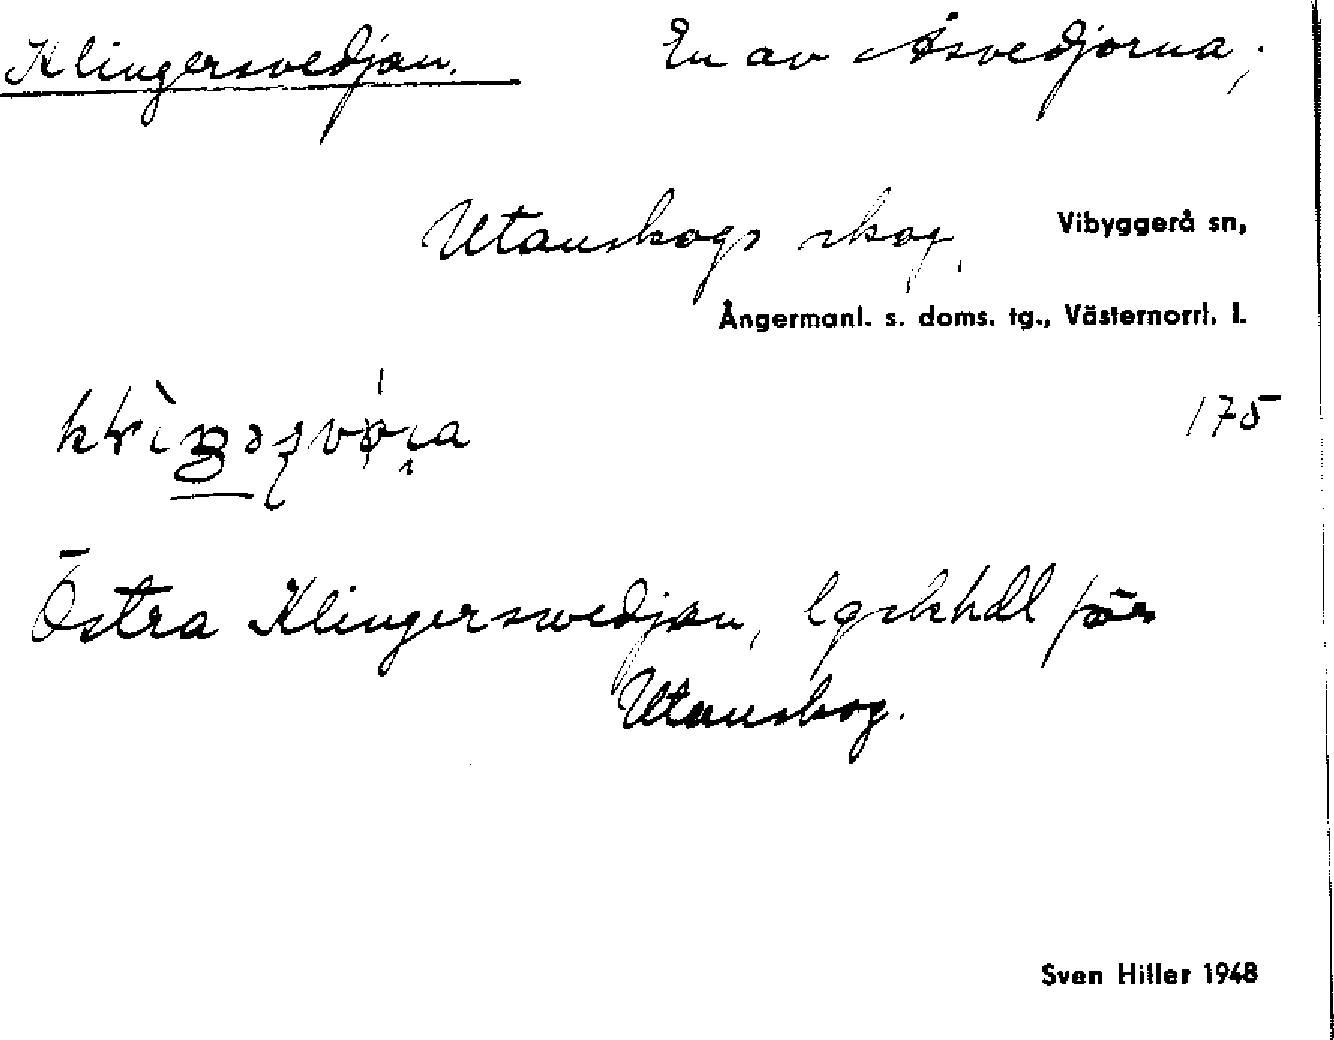 Klingersvedjan. En av Åsvedjorna;
Utanskogs skog, Vibyggerå sn,
Ångermanl. s. doms. tg., Västernorrl. l.
175
Östra Klingersvedjan, lgskhdl för
Utanskog.
Sven Hiller 1948